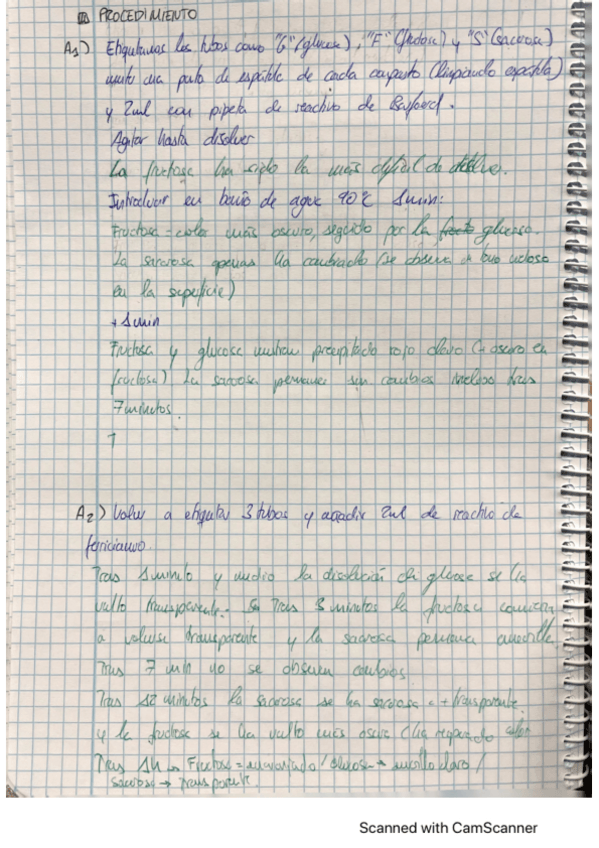 III PROCEDIMIENTO
A1) Etiquetamos los tubos como "G" (glucosa), "F" (fructosa) y "S" (sacarosa)
una punta de espátula de cada compuesto (limpiando espátula)
y 2ml con pipeta de reactivo de Barfoed.
Agitar hasta disolver
La fructosa ha sido la más difícil de disolver.
Introducir en baño de agua 90ºC 5min:
Fructosa = color más oscuro, seguido por la glucosa.
La sacarosa apenas ha cambiado (se observa
en la superficie)
+ 5min
Fructosa y glucosa muestran precipitado rojo claro (+ oscuro en
fructosa) La sacarosa permanece sin cambios incluso tras
7 minutos.
A2) Volver a etiquetar 3 tubos y añadir 2ml de reactivo de
ferricianuro.
Tras 1 minuto y medio la disolución de glucosa se ha
vuelto transparente. Tras 3 minutos la fructosa comienza
a volverse transparente y la sacarosa permanece amarilla.
Tras 7 min no se observan cambios
Tras 12 minutos la sacarosa se ha sacarosa + transparente
y la fructosa se ha vuelto más oscura (ha recuperado color
Tras 1h → Fructosa = anaranjado / Glucosa → amarillo claro /
sacarosa → transparente.
Scanned with CamScanner